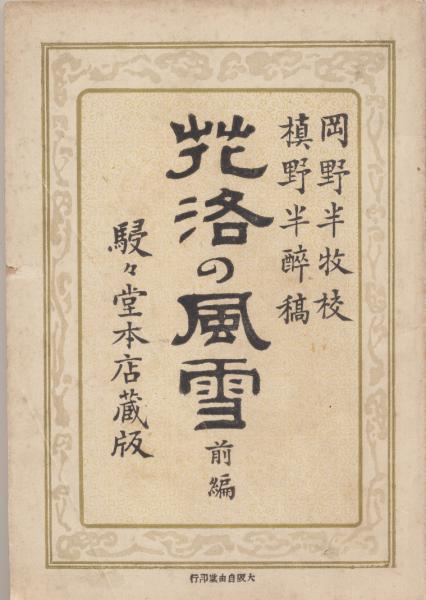 岡野半牧校
槙野半醉稿
花洛の風雪
前編
駸々堂本店蔵版
大阪自由堂印行